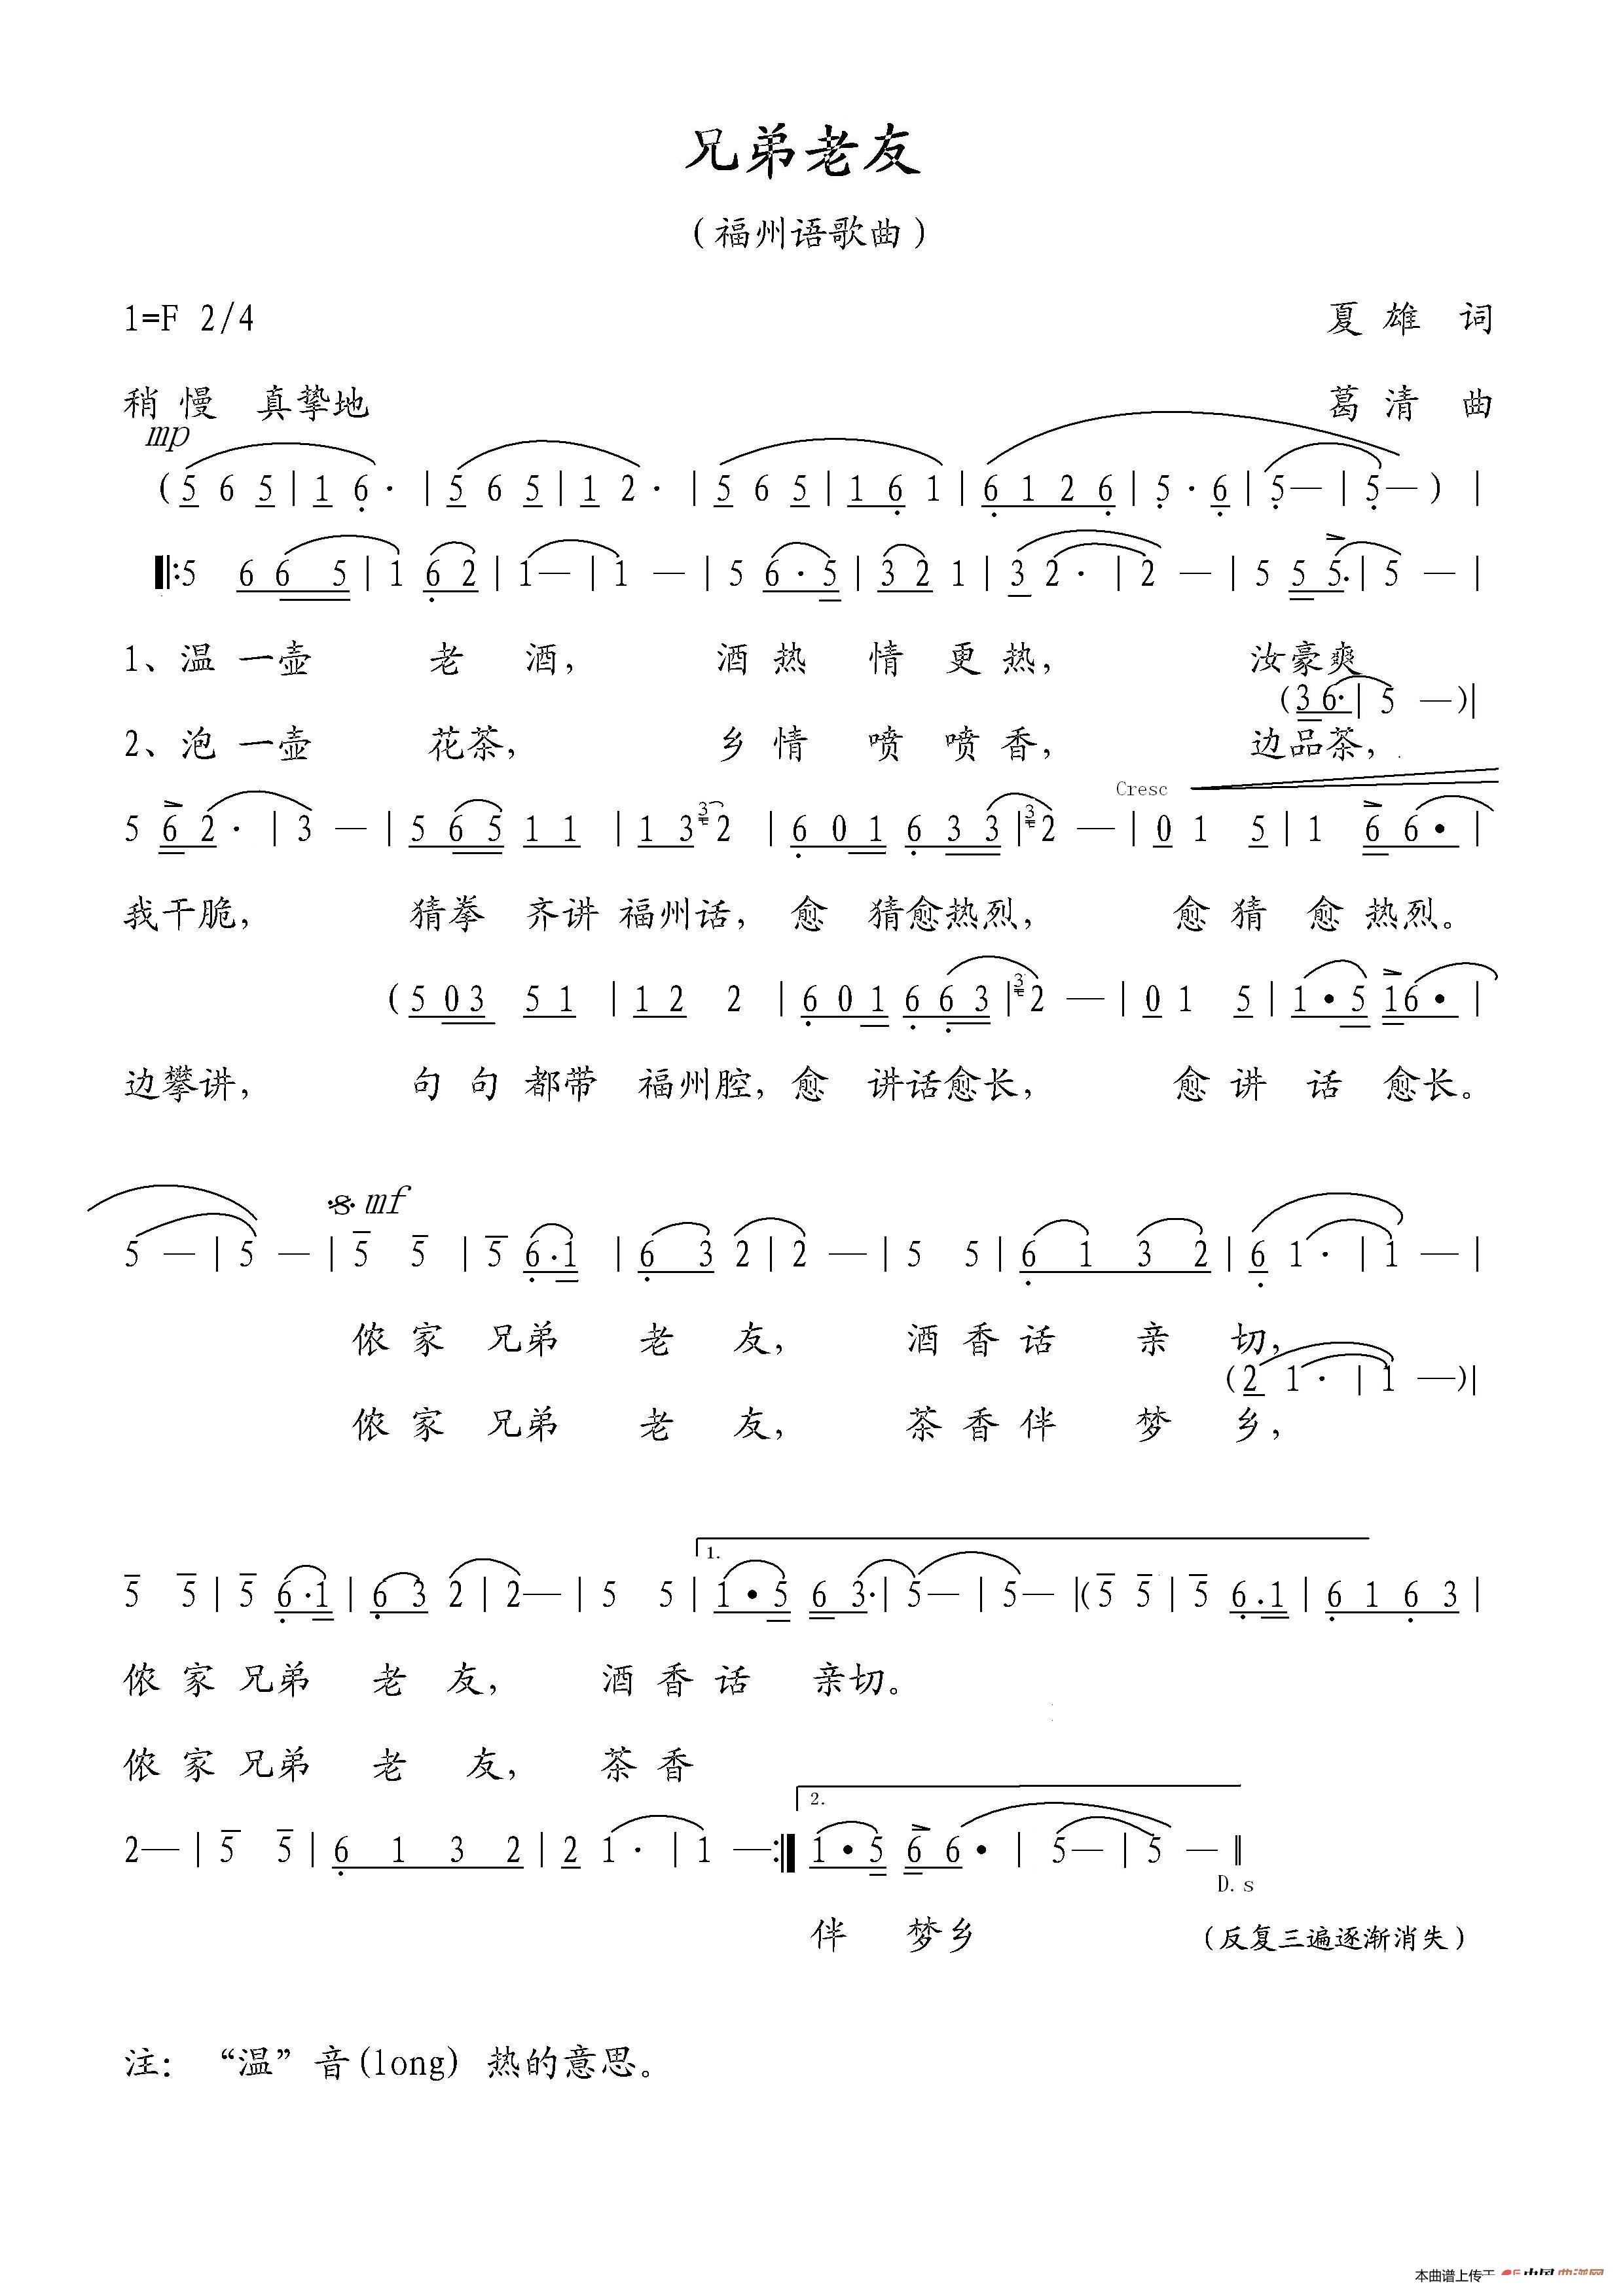 兄弟老友
（福州语歌曲）
1=F 2/4 夏 雄 词
稍 慢 真挚地 葛 清 曲
mp
(5 6 5 | 1 6· | 5 6 5 | 1 2· | 5 6 5 | 1 6 1 | 6 1 2 6 | 5·6 | 5— | 5—) |
‖:5 6 6 5 | 1 6 2 | 1— | 1 — | 5 6·5 | 3 2 1 | 3 2· | 2 — | 5 5 5· | 5 — |
1、温 一壶 老 酒， 酒 热 情 更 热， 汝豪爽
(3 6· | 5 —) |
2、泡 一壶 花茶， 乡 情 喷 喷 香， 边品茶，
Cresc
5 6 2· | 3 — | 5 6 5 1 1 | 1 3 3 2 | 6 0 1 6 3 3 | 3 2 — | 0 1 5 | 1 6 6· |
我干脆， 猜拳 齐讲 福州话， 愈 猜愈热烈， 愈 猜 愈 热烈。
(5 0 3 5 1 | 1 2 2 | 6 0 1 6 6 3 | 3 2 — | 0 1 5 | 1·5 1 6· |
边攀讲， 句 句 都带 福州腔， 愈 讲话愈长， 愈 讲 话 愈长。
mf
5 — | 5 — | 5 5 | 5 6·1 | 6 3 2 | 2 — | 5 5 | 6 1 3 2 | 6 1· | 1 — |
侬 家 兄弟 老 友， 酒 香 话 亲 切，
(2 1· | 1 —) |
侬 家 兄弟 老 友， 茶 香 伴 梦 乡，
1.
5 5 | 5 6·1 | 6 3 2 | 2— | 5 5 | 1·5 6 3· | 5— | 5— | (5 5 | 5 6·1 | 6 1 6 3 |
侬 家 兄弟 老 友， 酒 香 话 亲切。
侬 家 兄弟 老 友， 茶 香
2.
2— | 5 5 | 6 1 3 2 | 2 1· | 1 —:‖ 1·5 6 6· | 5— | 5 — ‖
D.s
伴 梦乡 （反复三遍逐渐消失）
注： “温”音(long) 热的意思。
本曲谱上传于 中国曲谱网